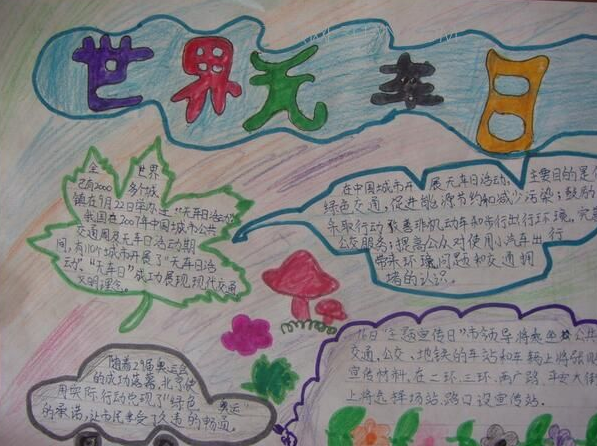 世界无车日
全 世界
已有2000 多个城
镇在9月22日举办过"无车日活动"
我国在2007年中国城市公共
交通周及无车日活动期
间,有110个城市开展了"无车日活
动","无车日"成功展现现代交通
文明理念。
在中国城市开 展无车日活动, 主要目的是
绿色交通,促进能源节约和减少污染;鼓励
采取行动改善非机动车和步行出行环境,完
公交服务;提高公众对使用小汽车出行
带来环境问题和交通拥
堵的认识。
随着29届奥运会
的成功落幕,北京使
用实际行动兑现了"绿色 奥运
的承诺,让市民享受了久违的畅通。
16日"主题宣传日"市领导将乘坐公共
交通,公交、地铁的车站和车辆上将张贴
宣传材料,在二环、三环、两广路、平安大街
上将选择场站、路口设宣传站。